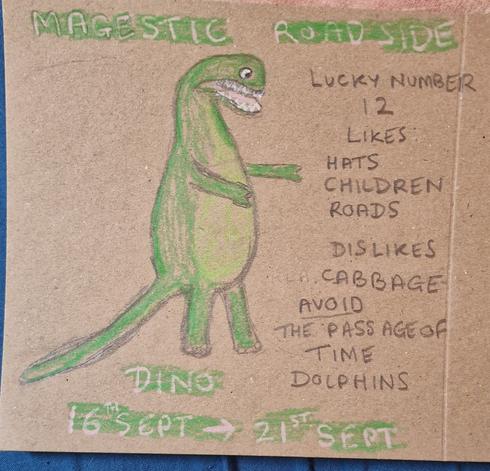 MAGESTIC ROADSIDE
LUCKY NUMBER
12
LIKES:
HATS
CHILDREN
ROADS
DISLIKES
CABBAGE
AVOID
THE PASSAGE OF
TIME
DOLPHINS
DINO
16TH SEPT → 21ST SEPT